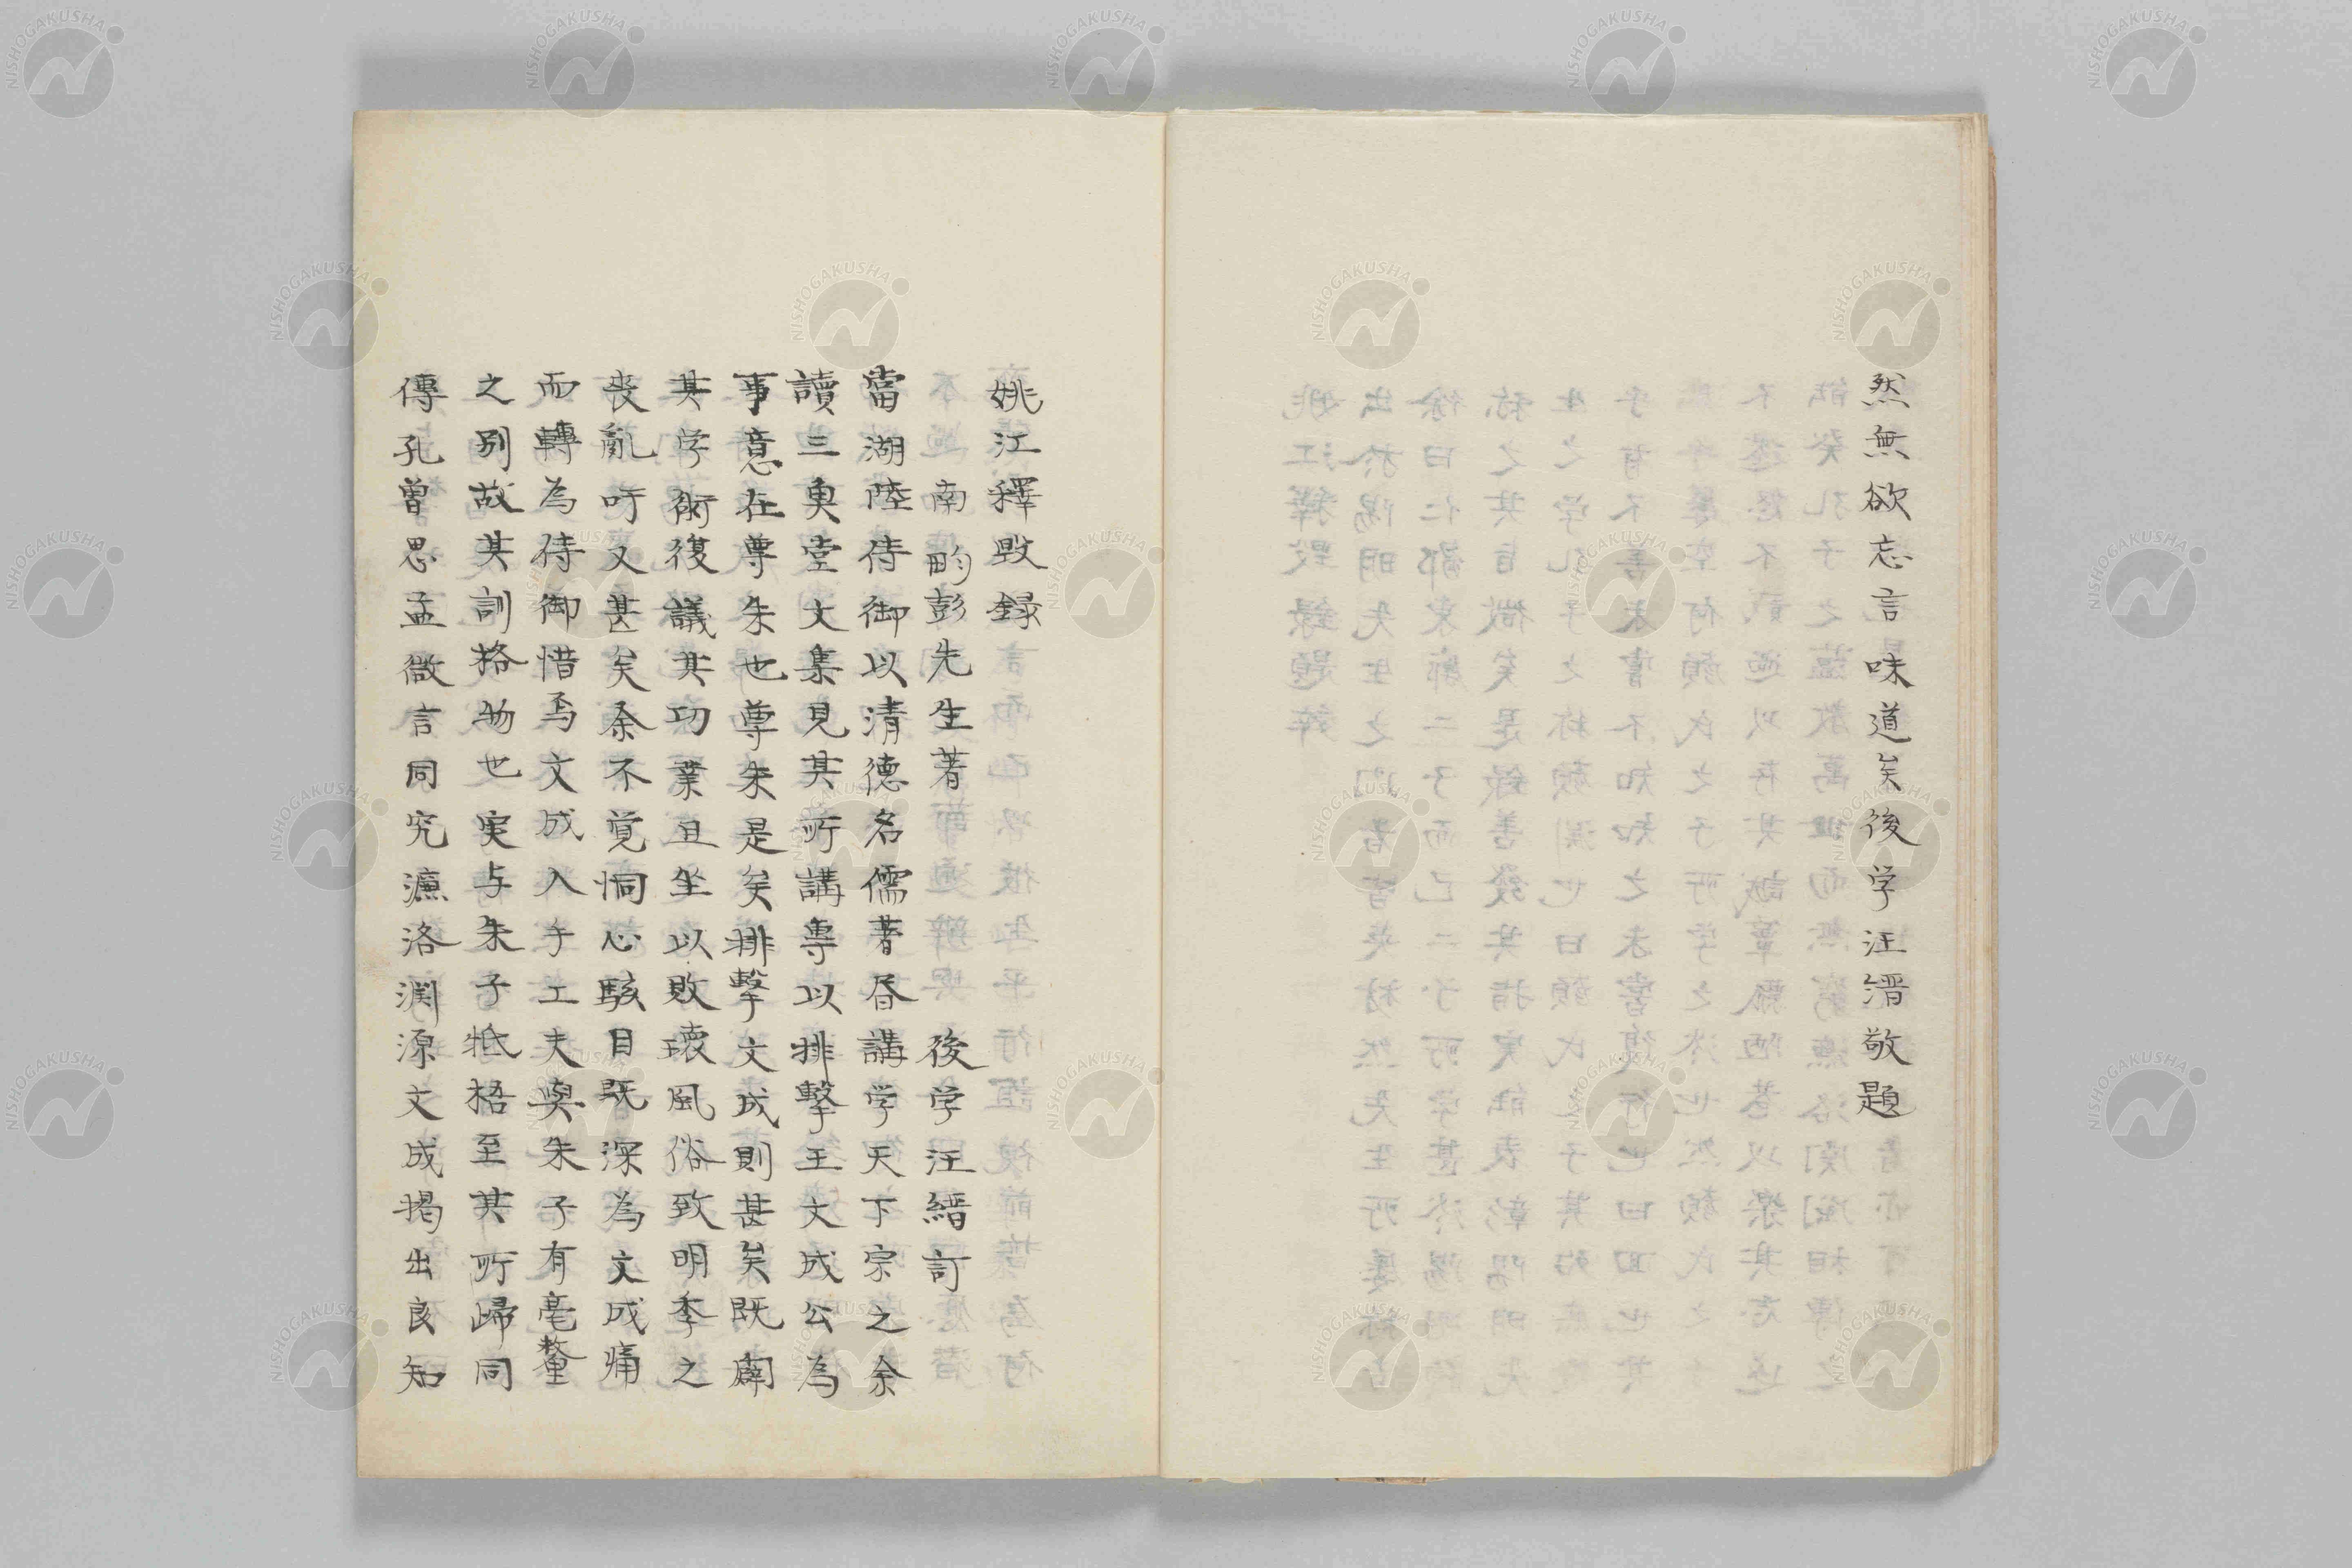 然無欲忘言味道矣後学汪縉敬題
姚江釋毀録
南畇彭先生著 後学汪縉訂
當湖陸侍御以清德名儒著㫺講学天下宗之余
讀三魚堂文集見其所講專以排擊王文成公為
事意在尊朱也尊朱是矣排擊文成則甚矣既闢
其学術復議其功業且坐以敗壞風俗致明季之
喪亂吁又甚矣余不覚恫心駭目既深為文成痛
而轉為侍御惜焉文成入手工夫與朱子有毫釐
之别故其訓格物也実与朱子牴牾至其所歸同
傳孔曽思孟微言同究濂洛渊源文成揭出良知
NISHOGAKUSHA